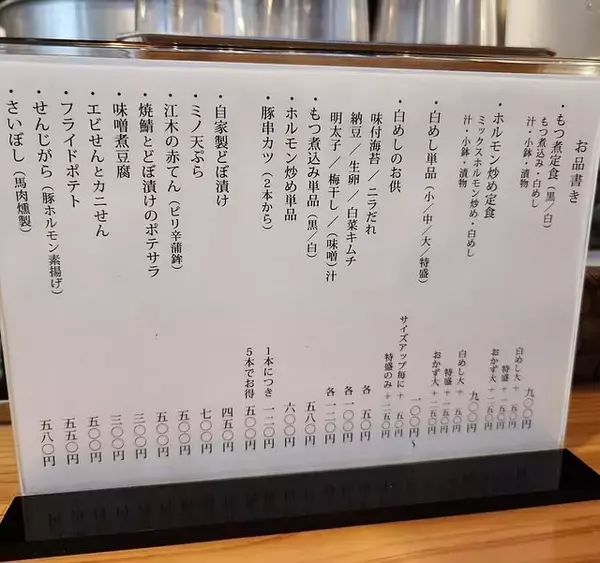 お品書き
・もつ煮定食(黒/白) 九〇〇円
もつ煮込み・白めし 白めし大+五〇円
汁・小鉢・漬物 特盛+一五〇円
おかず大+二五〇円
・ホルモン炒め定食 九〇〇円
ミックスホルモン炒め・白めし 白めし大+五〇円
汁・小鉢・漬物 特盛+一五〇円
おかず大+二五〇円
・白めし単品(小/中/大/特盛) 一〇〇円~
サイズアップ毎に+五〇円
特盛のみ+一五〇円
・白めしのお供
味付海苔/ニラだれ 各五〇円
納豆/生卵/白菜キムチ 各一〇〇円
明太子/梅干し/(味噌)汁 各一二〇円
・もつ煮込み単品(黒/白) 五八〇円
・ホルモン炒め単品 六〇〇円
・豚串カツ(2本から) 1本につき 一二〇円
5本でお得 五〇〇円
・自家製どぼ漬け 四五〇円
・ミノ天ぷら 七〇〇円
・江木の赤てん(ピリ辛蒲鉾) 五〇〇円
・焼鯖とどぼ漬けのポテサラ 五〇〇円
・味噌煮豆腐 三〇〇円
・エビせんとカニせん 三〇〇円
・フライドポテト 五〇〇円
・せんじがら(豚ホルモン素揚げ) 五五〇円
・さいぼし(馬肉燻製) 五八〇円